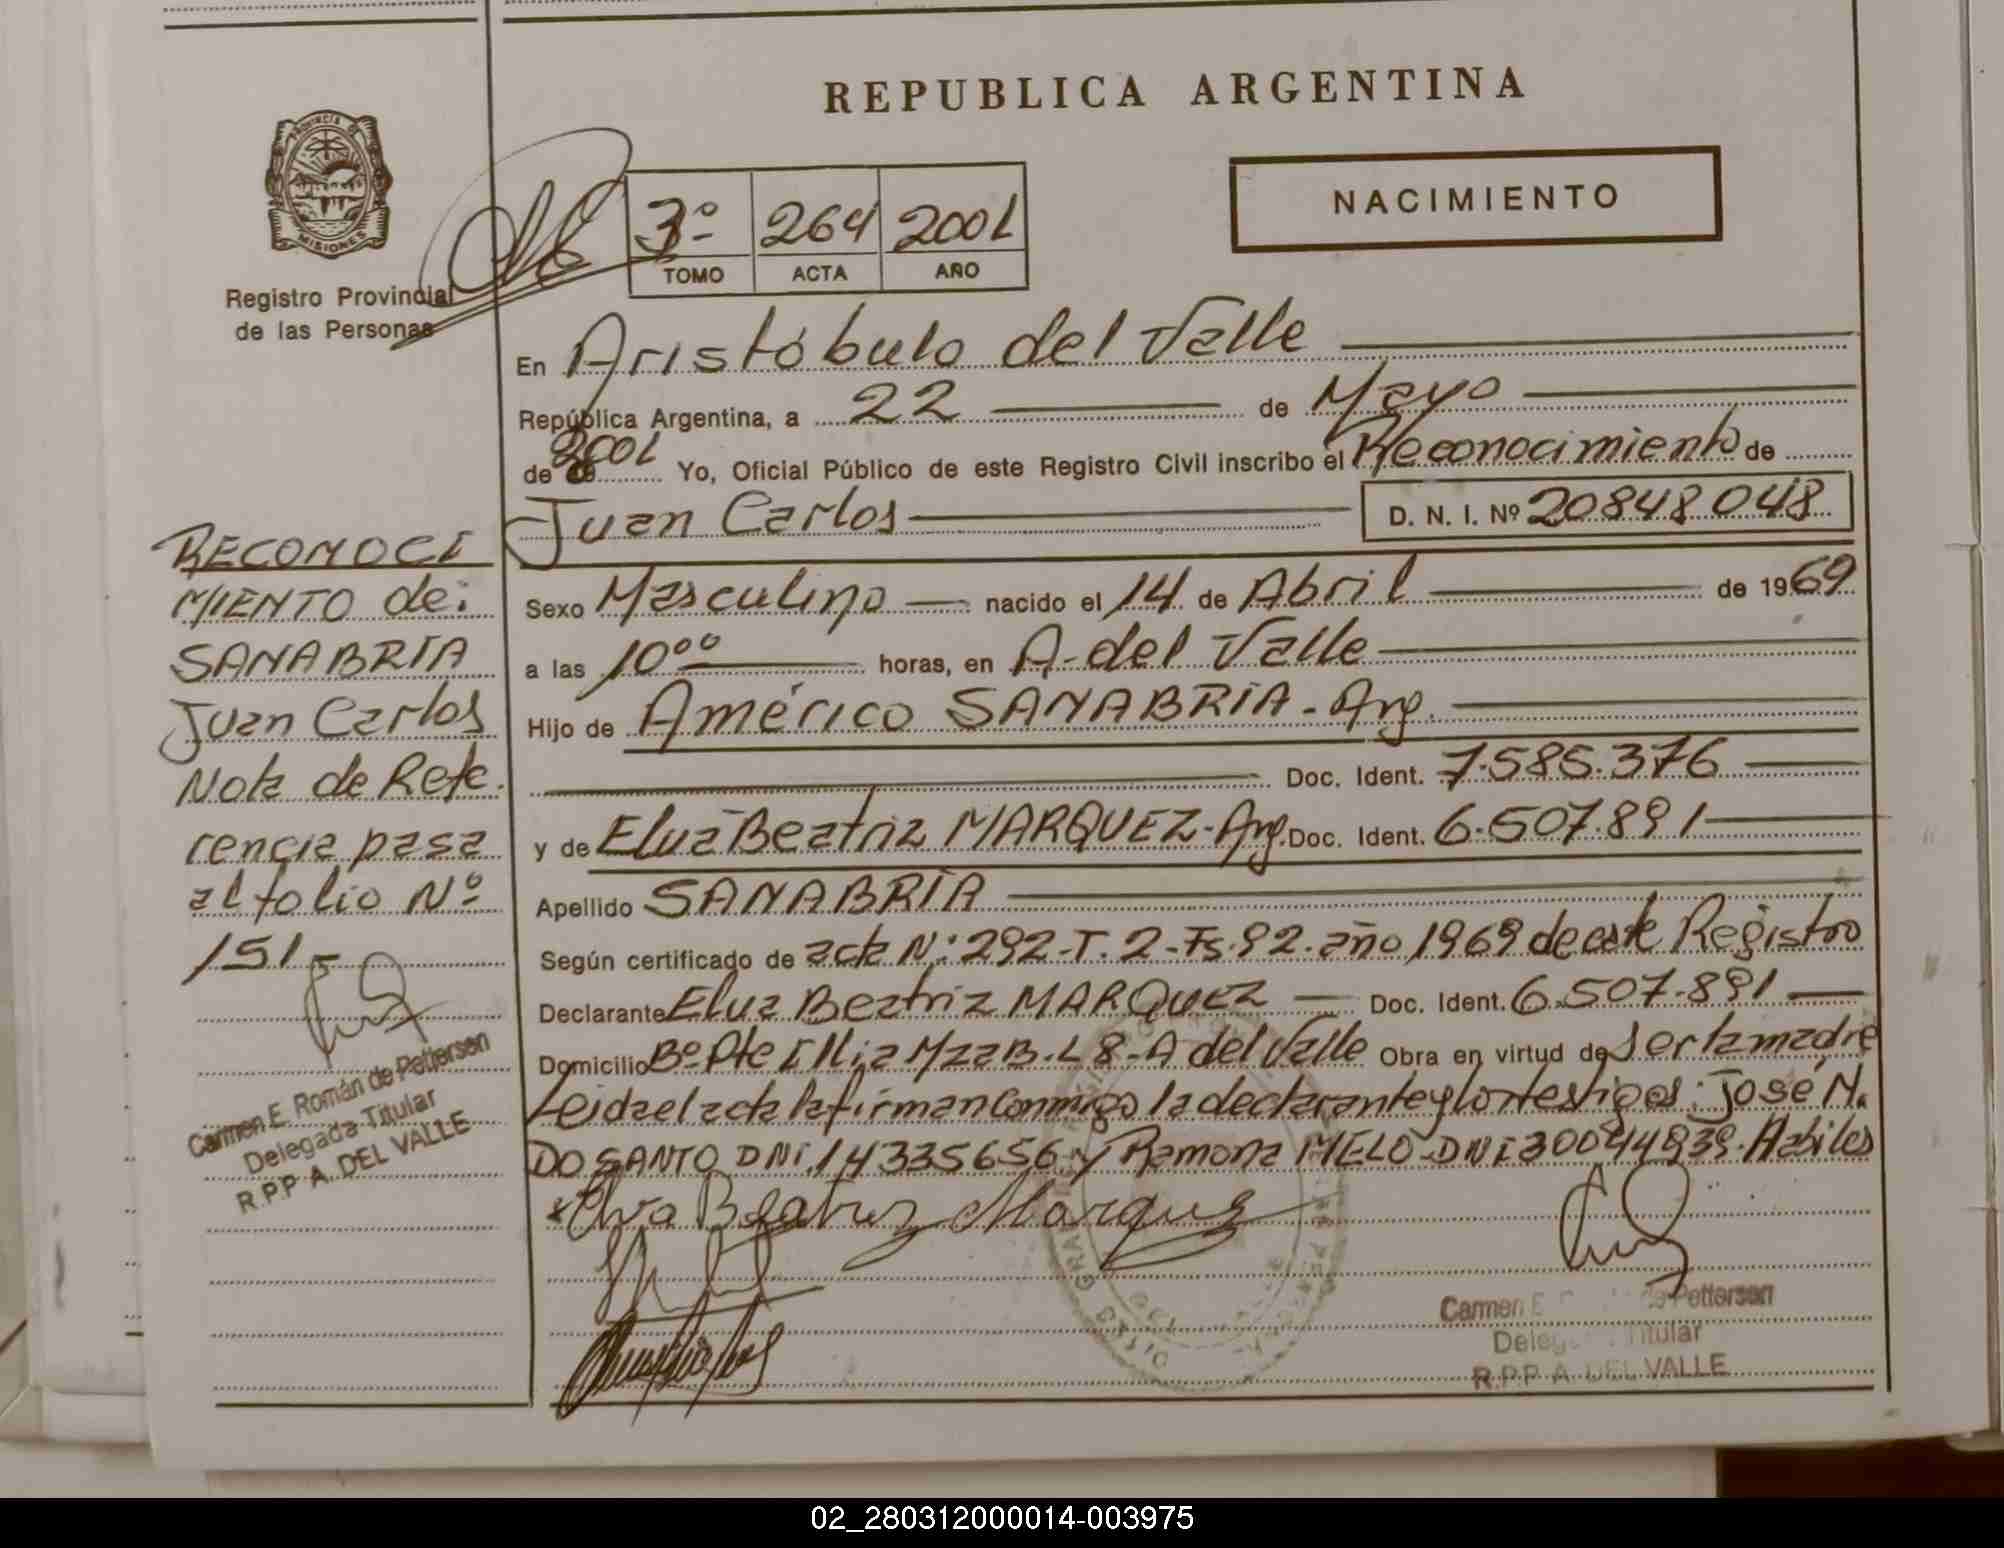 REPUBLICA ARGENTINA
NACIMIENTO
PROVINCIA DE
MISIONES
Registro Provincial
de las Personas
3º 264 2001
TOMO ACTA AÑO
En Aristóbulo del Valle
República Argentina, a 22 de Mayo
de 2001 Yo, Oficial Público de este Registro Civil inscribo el Reconocimiento de
Juan Carlos D. N. I. Nº 20848048
Sexo Masculino nacido el 14 de Abril de 1969
a las 10ºº horas, en A. del Valle
Hijo de Américo SANABRIA - Arg.
Doc. Ident. 7.585.376
y de Elva Beatriz MARQUEZ - Arg. Doc. Ident. 6.507.891
Apellido SANABRIA
Según certificado de acta Nº: 292-T. 2-Fs.92. año 1969 de este Registro
Declarante Elva Beatriz MARQUEZ Doc. Ident. 6.507.891
Domicilio Bº Pte Illia Mza B. L 8 - A del Valle Obra en virtud de ser la madre
Leida el acta la firman conmigo la declarante y los testigos: José M.
DO SANTO DNI. 14335656 y Ramona MELO DNI 30044939. Habiles
Elva Beatriz Marquez
Carmen E. de Pettersen
Titular
R.P.P A. DEL VALLE
RECONOCI
MIENTO de:
SANABRIA
Juan Carlos
Nota de Refe.
rencia pasa
al folio Nº
151-
Carmen E. Román de Pettersen
Delegada Titular
R.P.P A. DEL VALLE
02_280312000014-003975